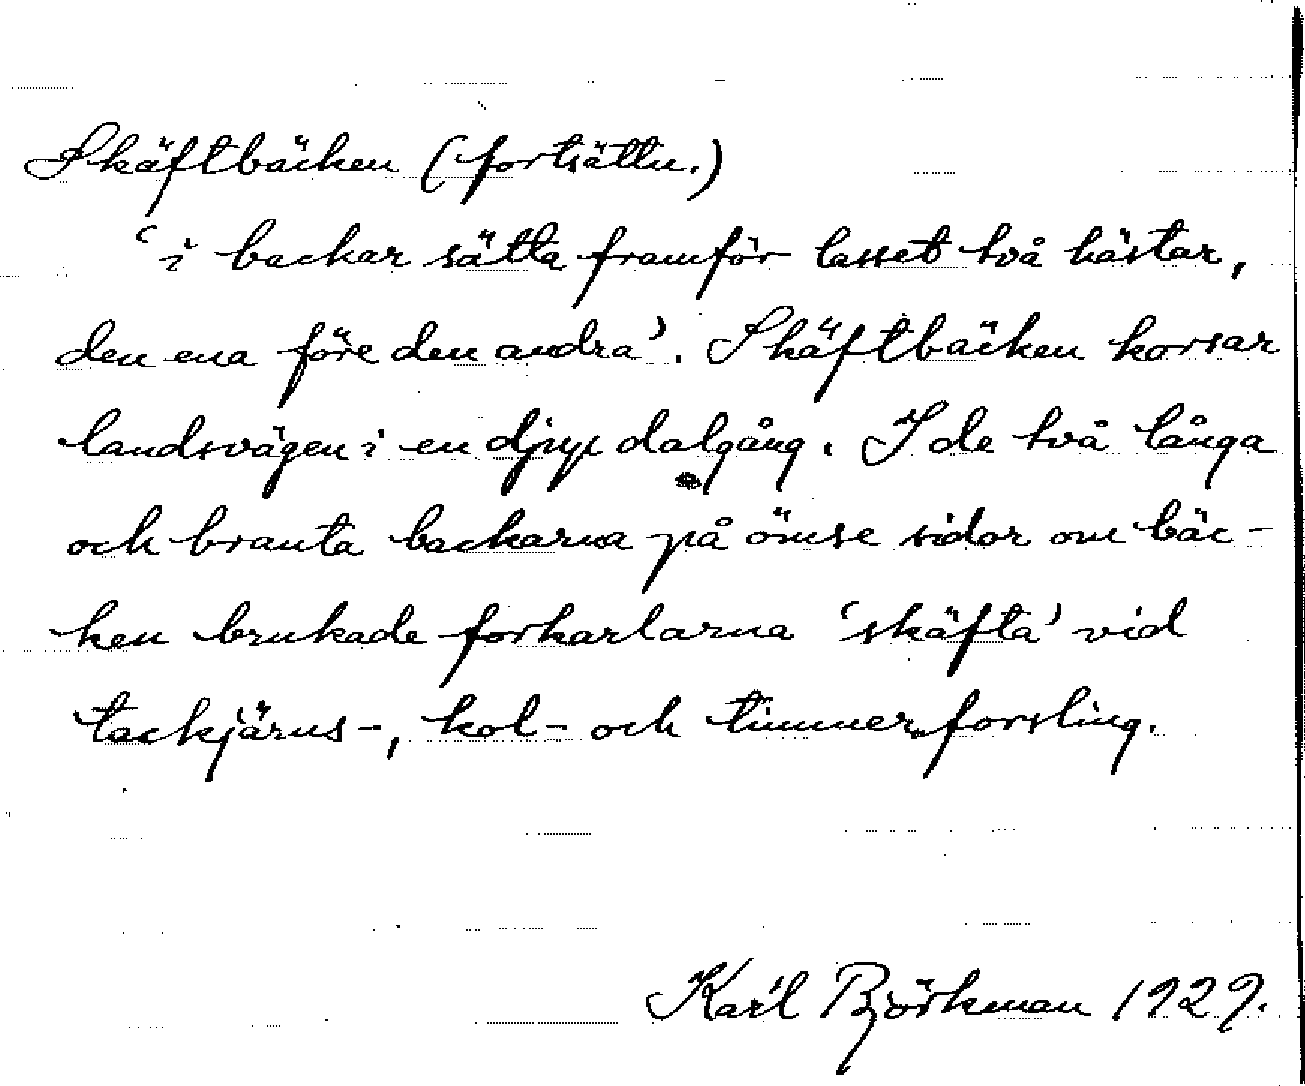 Skäftbäcken (fortsättn.)
‘i backar sätta framför lasset två hästar,
den ena före den andra’. Skäftbäcken korsar
landsvägen i en djup dalgång. I de två långa
och branta backarna på ömse sidor om bäc-
ken brukade forkarlarna ‘skäfta’ vid
tackjärns-, kol- och timmerforsling.
Karl Björkman 1929.